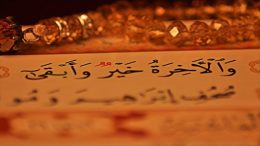 وَالْآخِرَةُ خَيْرٌ وَأَبْقَىٰٓ
صُحُفِ إِبْرَاهِيمَ وَمُو